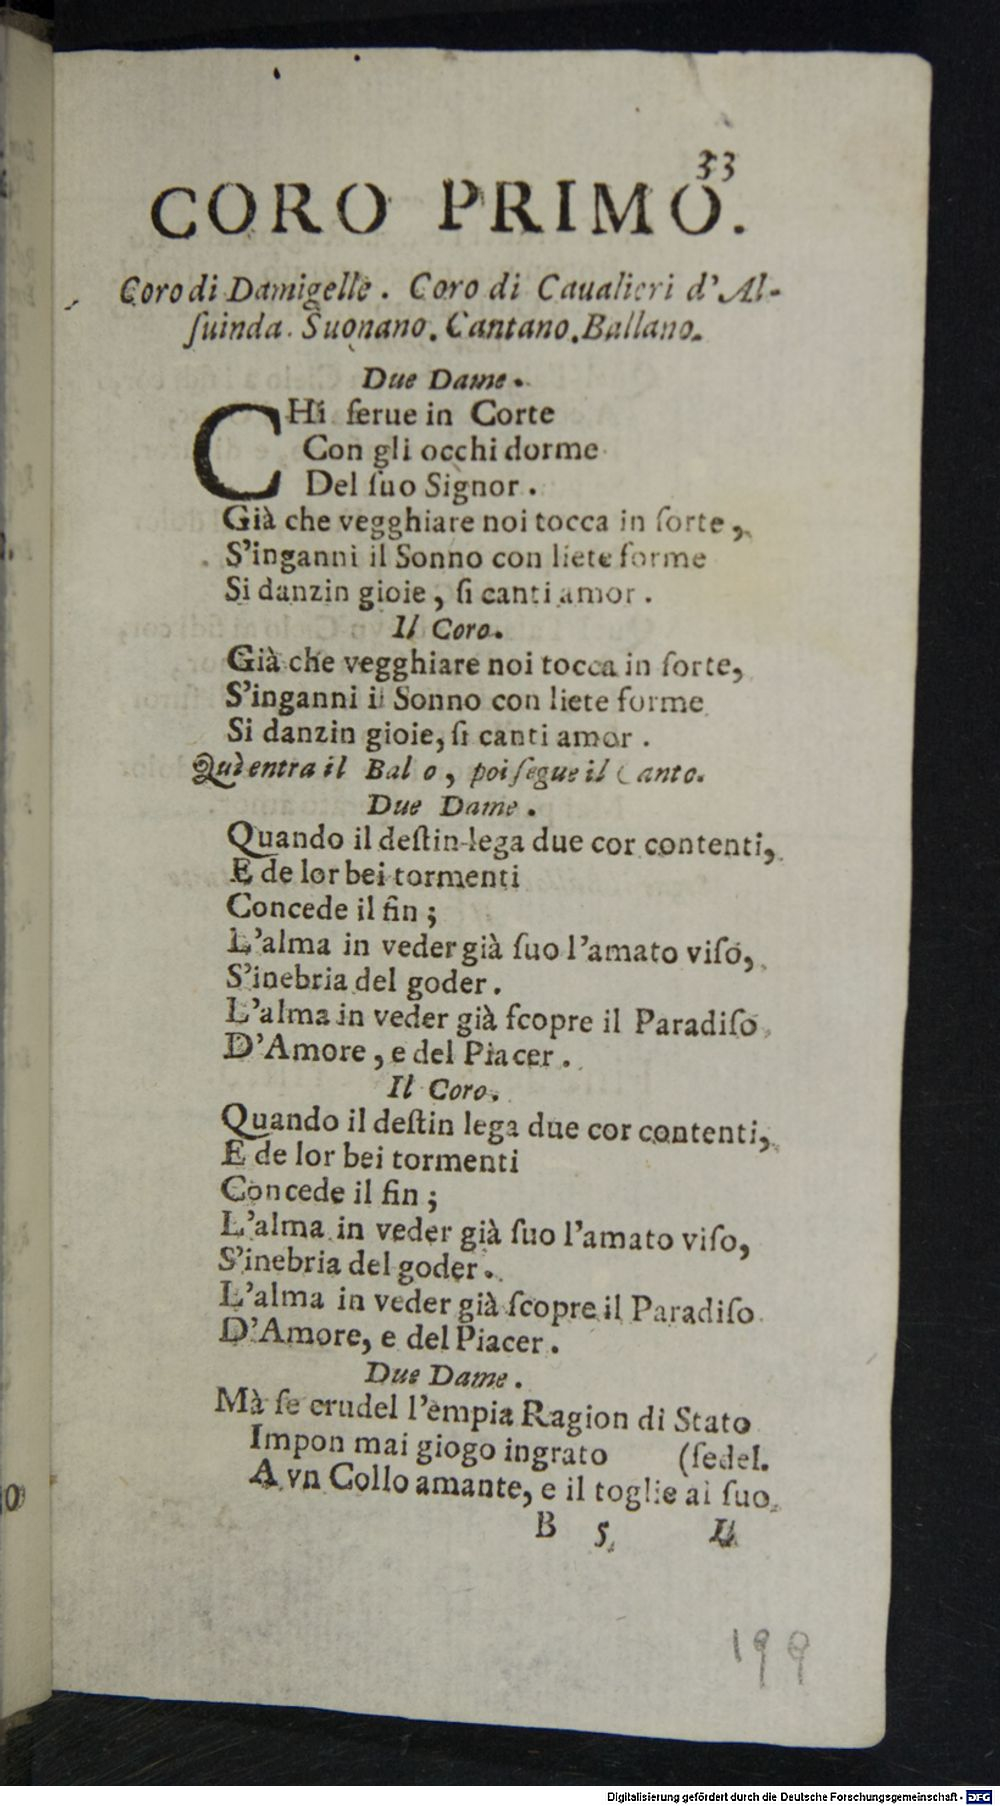 33
CORO PRIMO.
Coro di Damigelle. Coro di Caualieri d'Al-
ſuinda. Suonano. Cantano. Ballano.
Due Dame.
CHi ſerue in Corte
Con gli occhi dorme
Del ſuo Signor.
Già che vegghiare noi tocca in ſorte,
S'inganni il Sonno con liete forme
Si danzin gioie, ſi canti amor.
Il Coro.
Già che vegghiare noi tocca in ſorte,
S'inganni il Sonno con liete forme
Si danzin gioie, ſi canti amor.
Quì entra il Bal o, poi ſegue il Canto.
Due Dame.
Quando il deſtin lega due cor contenti,
E de lor bei tormenti
Concede il fin;
L'alma in veder già ſuo l'amato viſo,
S'inebria del goder.
L'alma in veder già ſcopre il Paradiſo
D'Amore, e del Piacer.
Il Coro.
Quando il deſtin lega due cor contenti,
E de lor bei tormenti
Concede il fin;
L'alma in veder già ſuo l'amato viſo,
S'inebria del goder.
L'alma in veder già ſcopre il Paradiſo
D'Amore, e del Piacer.
Due Dame.
Mà ſe crudel l'empia Ragion di Stato
Impon mai giogo ingrato (ſedel.
A vn Collo amante, e il toglie ai ſuo
B 5 Il
199
Digitalisierung gefördert durch die Deutsche Forschungsgemeinschaft - DFG